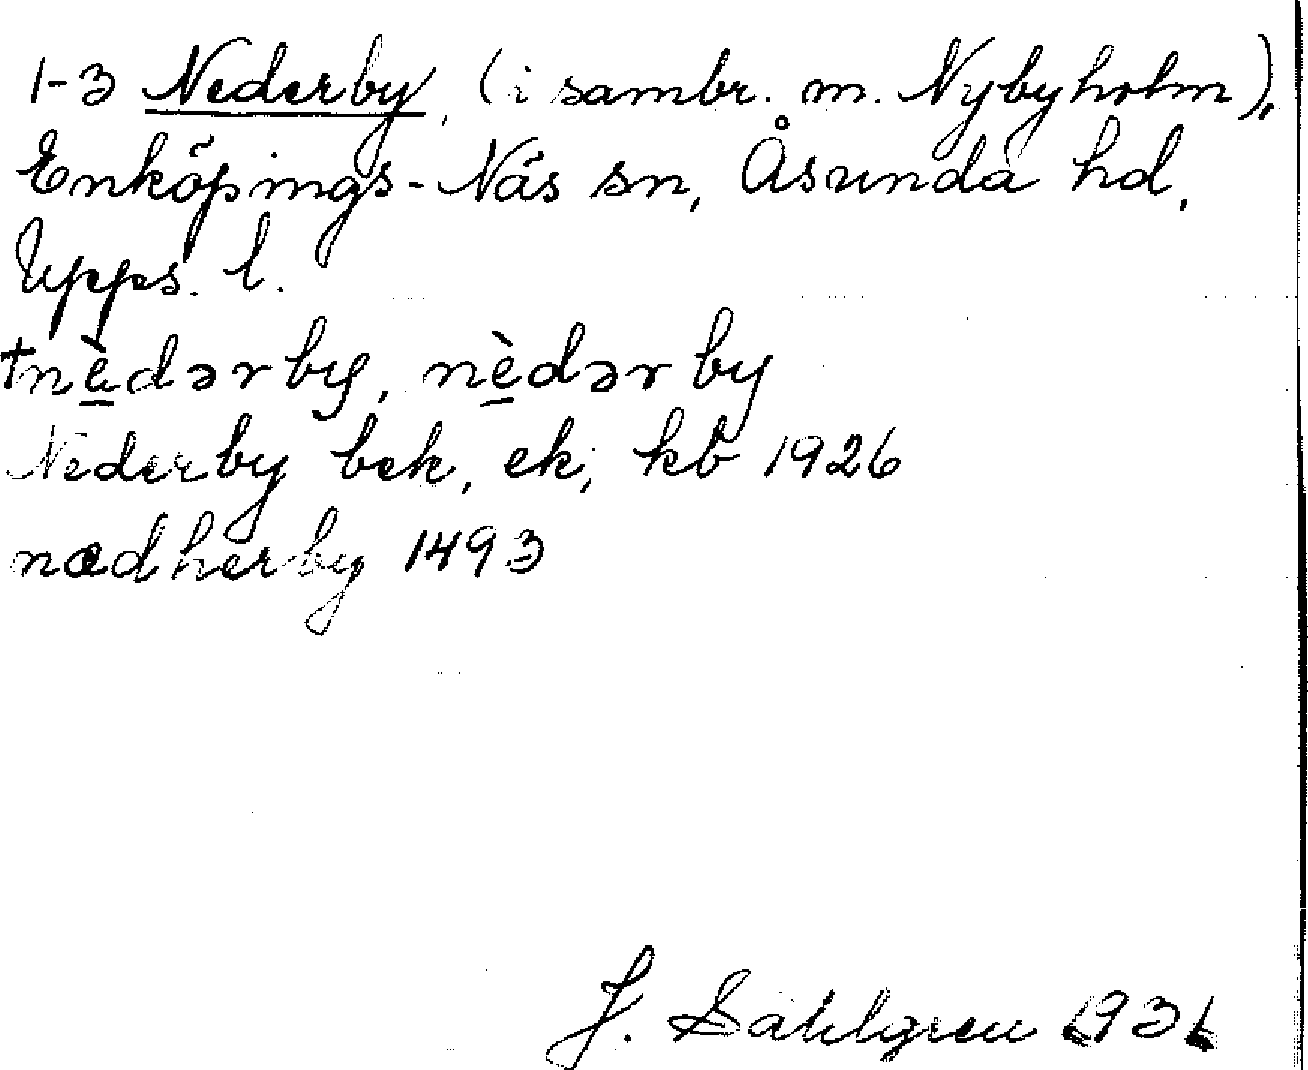 1-3 Nederby, (i sambr. m. Nybyholm),
Enköpings-Näs sn, Åsunda hd,
Upps. l.
†nè̱dərby, nè̱dərby
Nederby bek, ek, kb 1926
nædherby 1493
J. Sahlgren 1931